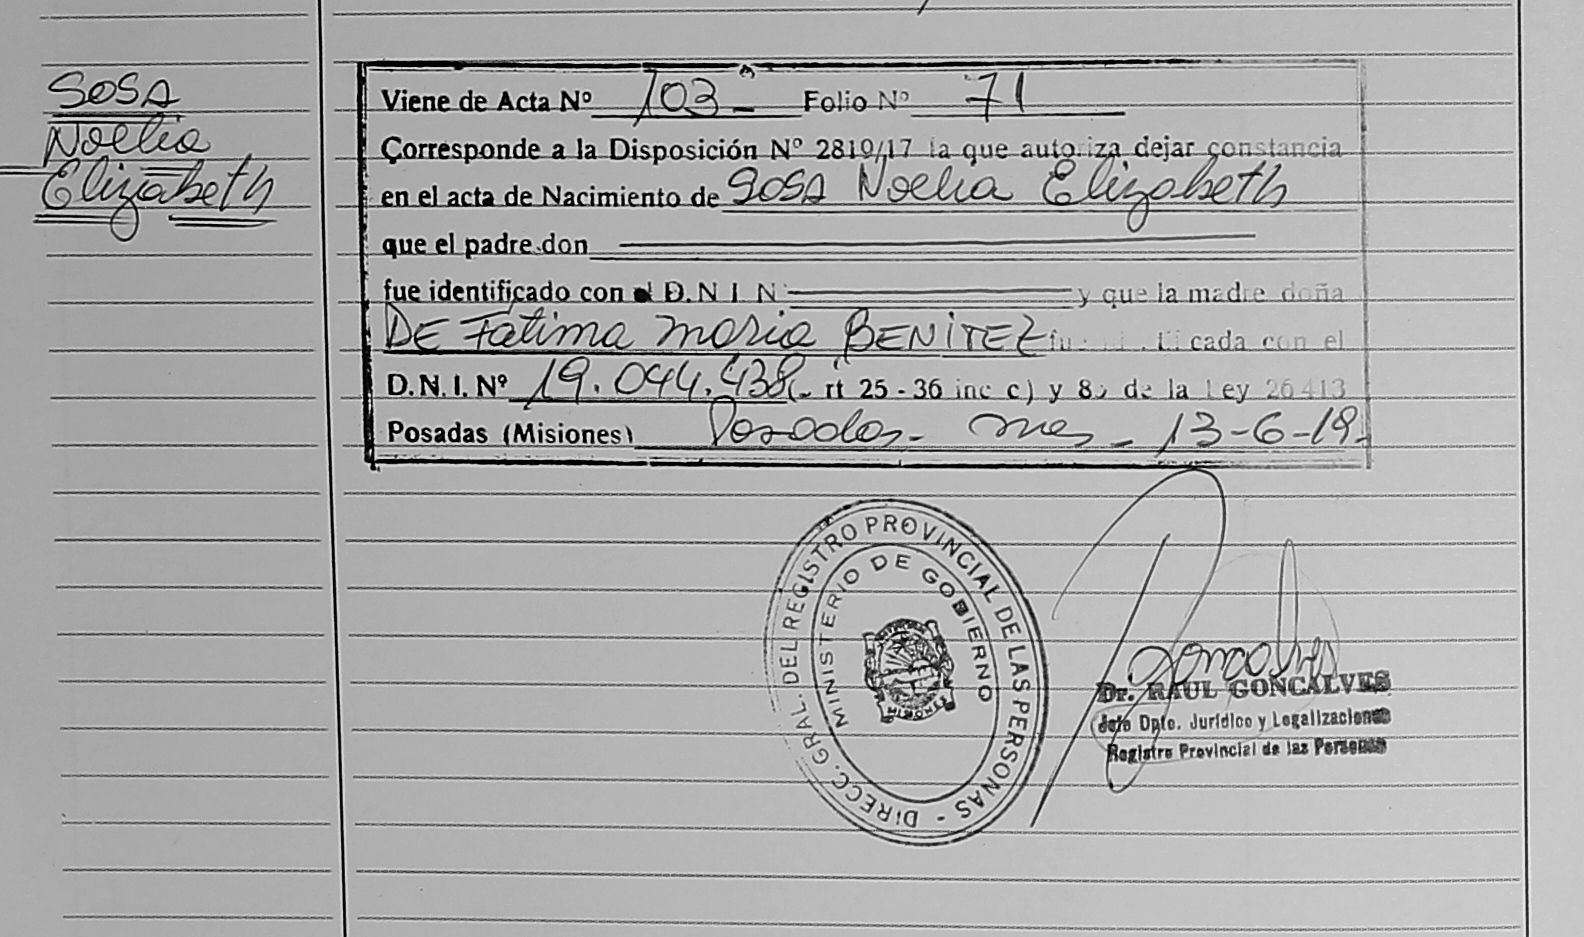 SOSA
Noelia
Elizabeth
Viene de Acta Nº 103 - Folio Nº 71
Corresponde a la Disposición Nº 2819/17 la que autoriza dejar constancia
en el acta de Nacimiento de SOSA Noelia Elizabeth
que el padre don
fue identificado con el D.N.I. Nº y que la madre doña
DE Fatima Maria BENITEZ cada con el
D.N.I. Nº 19.044.438 rt 25 - 36 inc c) y 8 de la Ley 26413
Posadas (Misiones) Posadas - Mnes - 13-6-19.
DIRECC. GRAL. DEL REGISTRO PROVINCIAL DE LAS PERSONAS -
MINISTERIO DE GOBIERNO
Goncalves
Dr. RAUL GONCALVES
Jefe Dpto. Jurídico y Legalizaciones
Registro Provincial de las Personas